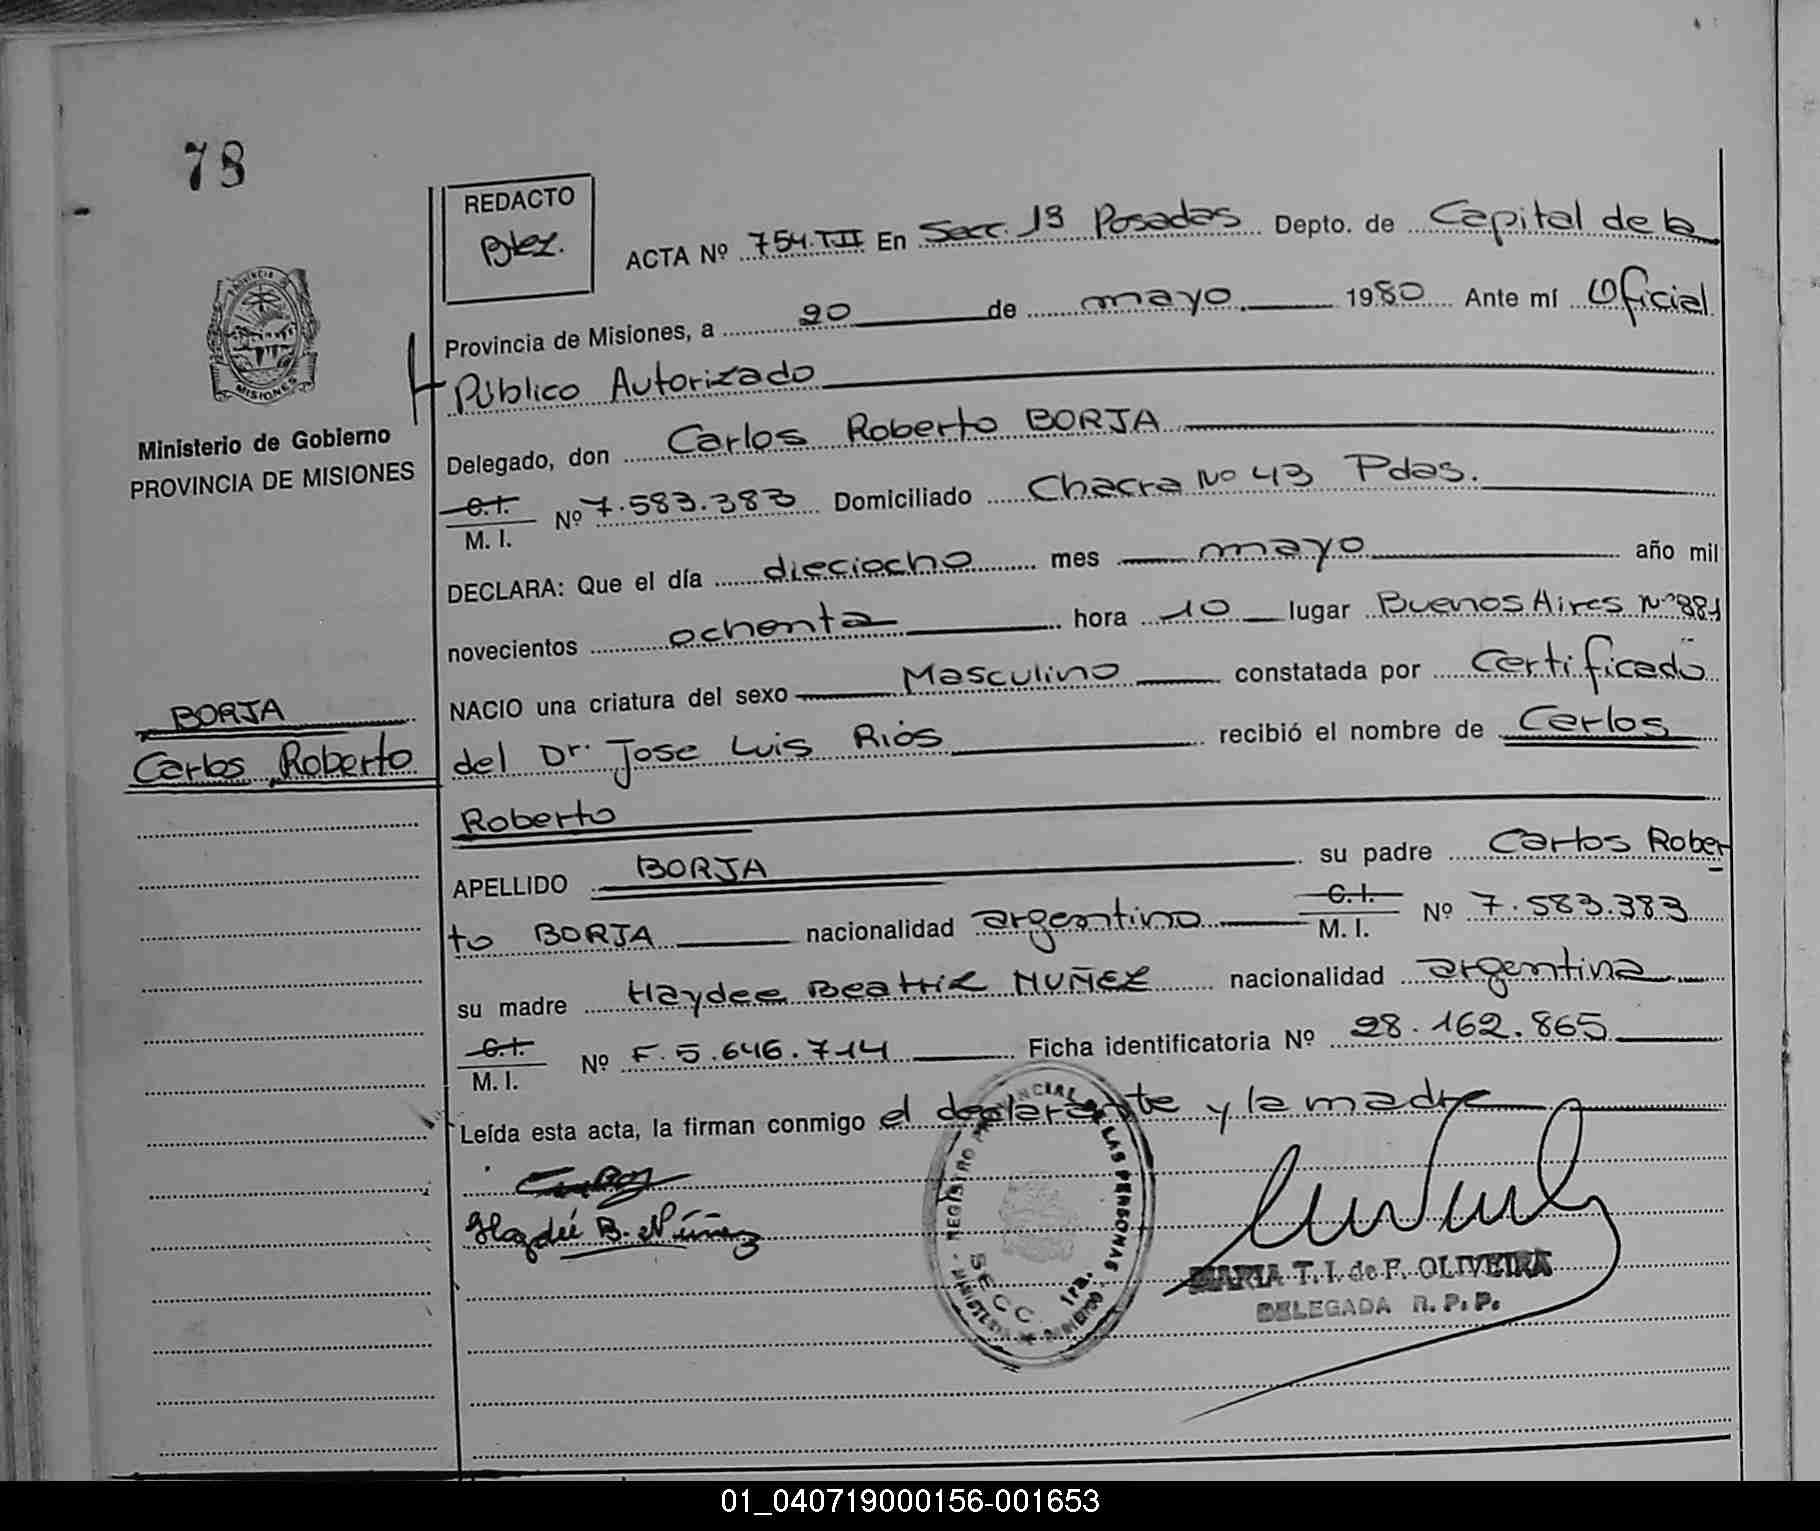 78
REDACTO
Btez.
ACTA Nº 754.TII En Secc. 1ª Posadas Depto. de Capital de la
Provincia de Misiones, a 20 de mayo 1980 Ante mí Oficial
Público Autorizado
Delegado, don Carlos Roberto BORJA
C.I. M. I. Nº 7.583.383 Domiciliado Chacra Nº 43 Pdas.
DECLARA: Que el día dieciocho mes mayo año mil
novecientos ochenta hora 10 lugar Buenos Aires Nº 881
NACIO una criatura del sexo Masculino constatada por Certificado
del Dr. Jose Luis Riós recibió el nombre de Carlos
Roberto
APELLIDO BORJA su padre Carlos Rober
to BORJA nacionalidad argentino C.I. M. I. Nº 7.583.383
su madre Haydee Beatriz NUÑEZ nacionalidad argentina
C.I. M. I. Nº F. 5.646.714 Ficha identificatoria Nº 28.162.865
Leída esta acta, la firman conmigo el declarante y la madre
Haydée B. Núñez
MARIA T. I. de F. OLIVEIRA
DELEGADA R. P. P.
REGISTRO PROVINCIAL DE LAS PERSONAS
SECC. 1ra.
MINISTERIO DE GOBIERNO
PROVINCIA
MISIONES
Ministerio de Gobierno
PROVINCIA DE MISIONES
BORJA
Carlos Roberto
01_040719000156-001653